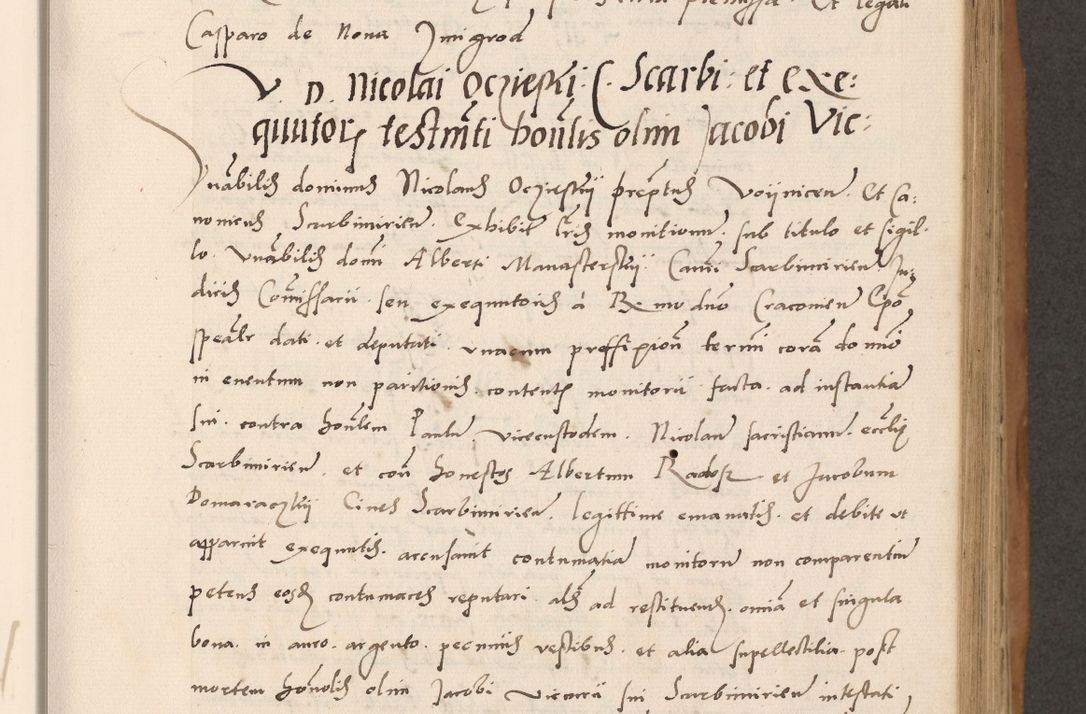 Casparo de Nova Zmigrod
V. D. Nicolai Oczieski C. Scarbi: et exe:
quutorz testmti honlis olim Jacobi Vic:
Vnabilis dominus Nicolaus Oczieskij preptus Voijnicen. Et Ca:
nonicus Scarbimirien. Exhibit lris monitioum. sub titulo et sigil.
lo. Vnabilis domi Alberti Manasterskij. Canci Scarbimirien. Ju:
dicis Comissarii seu exequutoris a Rmo dno Cracovien Epo,
spealr dati. et deputati. vnacum preffixion termi coram domino
in euentum non paritionis. contents monitorii facta. ad instantia
sui. contra honlem Paulu vicecustodem. Nicolaum sacristianum. ecclie
Scarbimirien. et con honestos Albertum Radosz et Jacobum
Domaraczkij Ciues Scarbimirien. legittime emanatis. et debite ut
apparuit exequutis. accusauit contumatia monitoru non comparentiu
petens eosd contumaces reputari. als ad restituend. omia et singula
bona. in auro. argento. pecuniis vestibus. et alia supellectilia. post
mortem honolis olim Jacobi Vicarii sui Scarbimirien intestati,